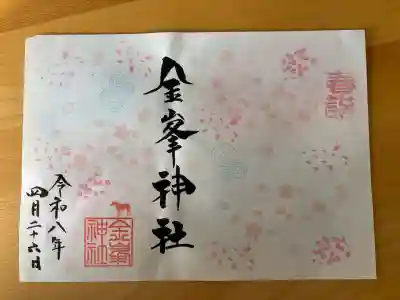 春詣
金峯神社
金峯
神社
令和八年
四月二十六日